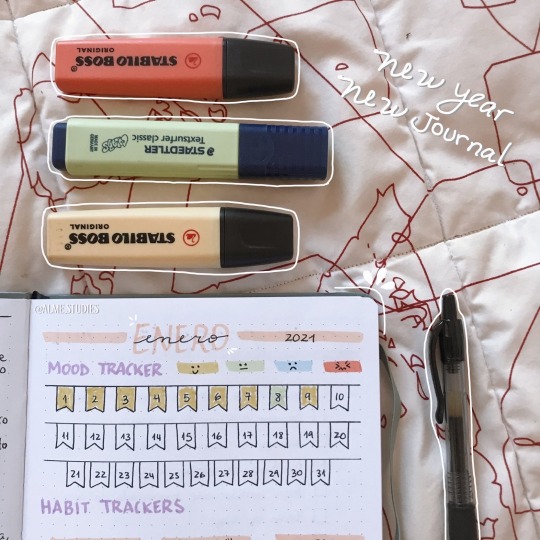 STABILO BOSS
ORIGINAL
new year
new journal
STAEDTLER
Textsurfer classic
STABILO BOSS
ORIGINAL
@ALMESTUDIES
ENERO
enero
2021
MOOD TRACKER
1 2 3 4 5 6 7 8 9 10
11 12 13 14 15 16 17 18 19 20
21 22 23 24 25 26 27 28 29 30 31
HABIT TRACKERS